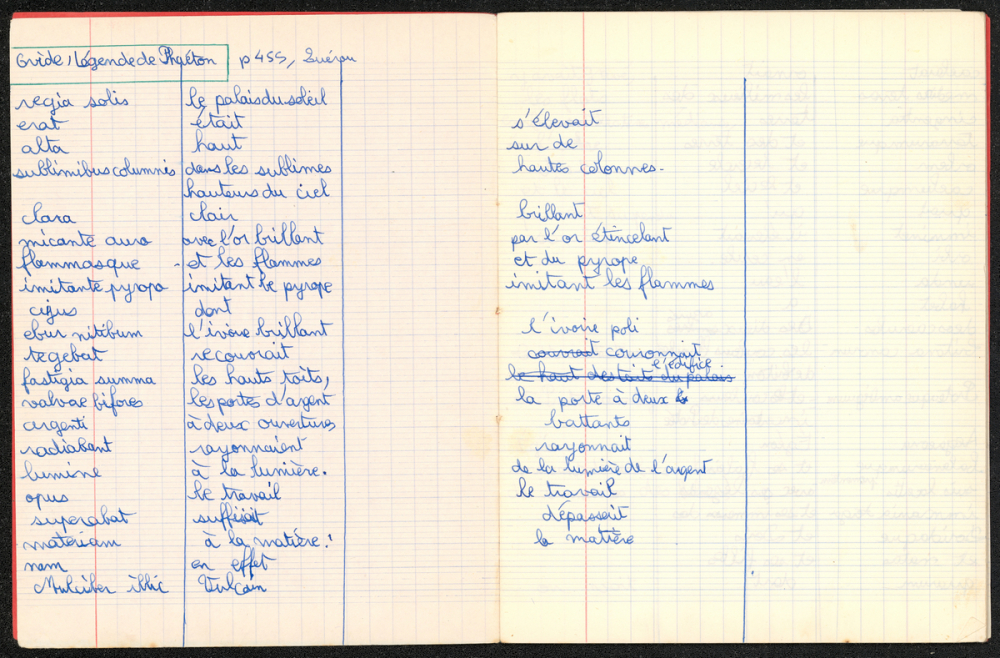 Ovide, Légende de Phaéton p 455, Guérou
regia solis le palais du soleil
erat était s'élevait
alta haut sur de
sublimibus columnis dans les sublimes hautes colonnes.
hauteurs du ciel
clara clair brillant
micante auro avec l'or brillant par l'or étincelant
flammasque - et les flammes et du pyrope
imitante pyropo imitant le pyrope imitant les flammes
cijus dont
ebur nitibum l'ivoire brillant l'ivoire poli
tegebat recouvrait couvrait couronnait
l'édifice
fastigia summa les hauts toits, le haut des toits du palais
valvae bifores les portes d'argent la porte à deux b
argenti à deux ouvertures battants
radiabant rayonnaient rayonnait
lumine à la lumière. de la lumière de l'argent
opus le travail le travail
superabat suffisait dépassait
materiam à la matière. la matière
nam en effet
Mulciber illic Vulcain